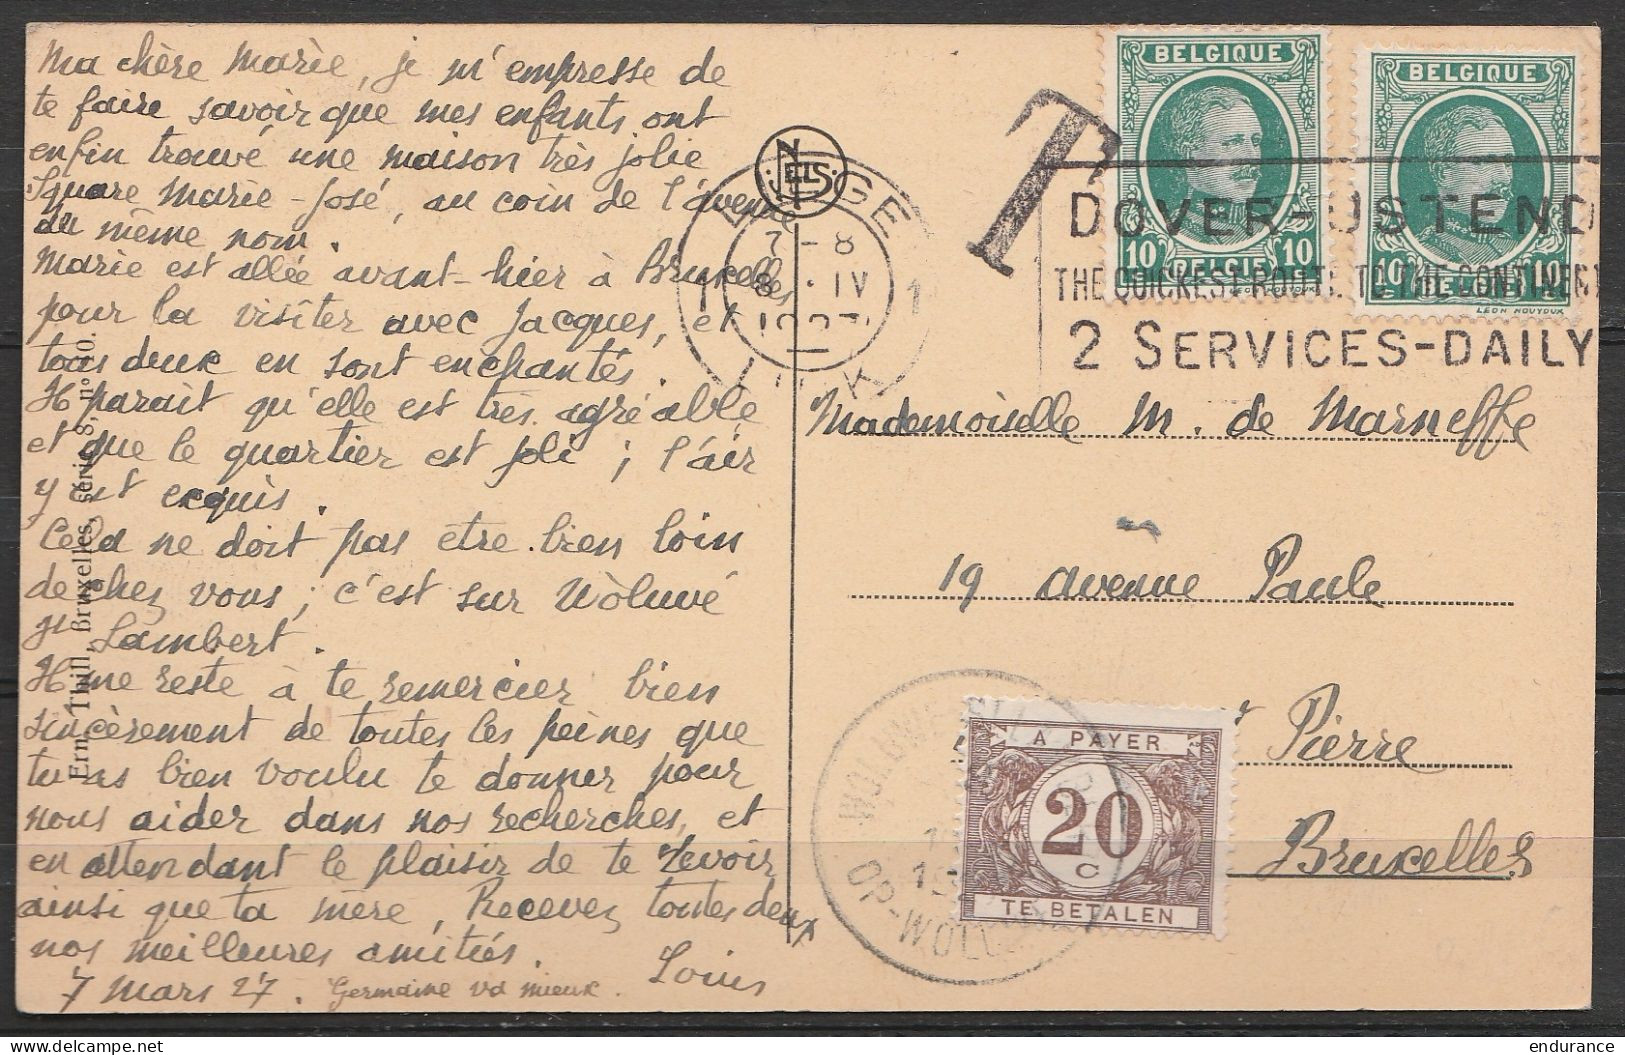 Ma chère Marie, je m'empresse de
te faire savoir que mes enfants ont
enfin trouvé une maison très jolie
Square Marie-José, au coin de l'avenue
du même nom.
Marie est allée avant-hier à Bruxelles
pour la visiter avec Jacques, et
tous deux en sont enchantés.
Il parait qu'elle est très agréable
et que le quartier est joli ; l'air
y est exquis.
Cela ne doit pas être bien loin
de chez vous ; c'est sur Wòluvé
St Lambert.
Il me reste à te remercier bien
sincèrement de toutes les peines que
tu as bien voulu te donner pour
nous aider dans nos recherches, et
en attendant le plaisir de te revoir
ainsi que ta mère, Recevez toutes deux
nos meilleures amitiés.
Louis
7 Mars 27. Germaine va mieux.
Ern. Thill, Bruxelles, série 8, n° 40.
NELS
LUIK
1 1
7-8
8 . IV
1927
T
BELGIQUE
10 10
BELGIE
BELGIQUE
10 10
BELGIE
LEON NOUYOUX
DOVER-OSTEND
THE QUICKEST ROUTE TO THE CONTINENT
2 SERVICES-DAILY
Mademoiselle M. de Marneffe
19 avenue Paule
Pierre
Bruxelles
A PAYER
20
C
TE BETALEN
endurance
© delcampe.net